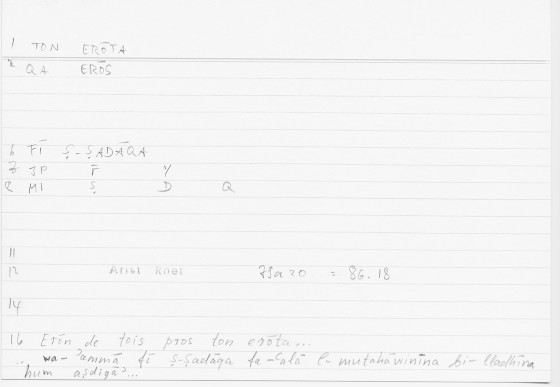 1 TON ERŌTA
2 QA ERŌS
6 FĪ Ṣ-ṢADĀQA
7 JP F̄ Y
8 MI Ṣ D Q
11
12 Arist Rhet 71a20 = 86.18
14
16 Erōn de tois pros ton erōta...
.. wa-ʾammā fī ṣ-ṣadāqa fa-ʿalā l-mutahāwinīna bi-lladhīna
hum aṣdiqāʾ...